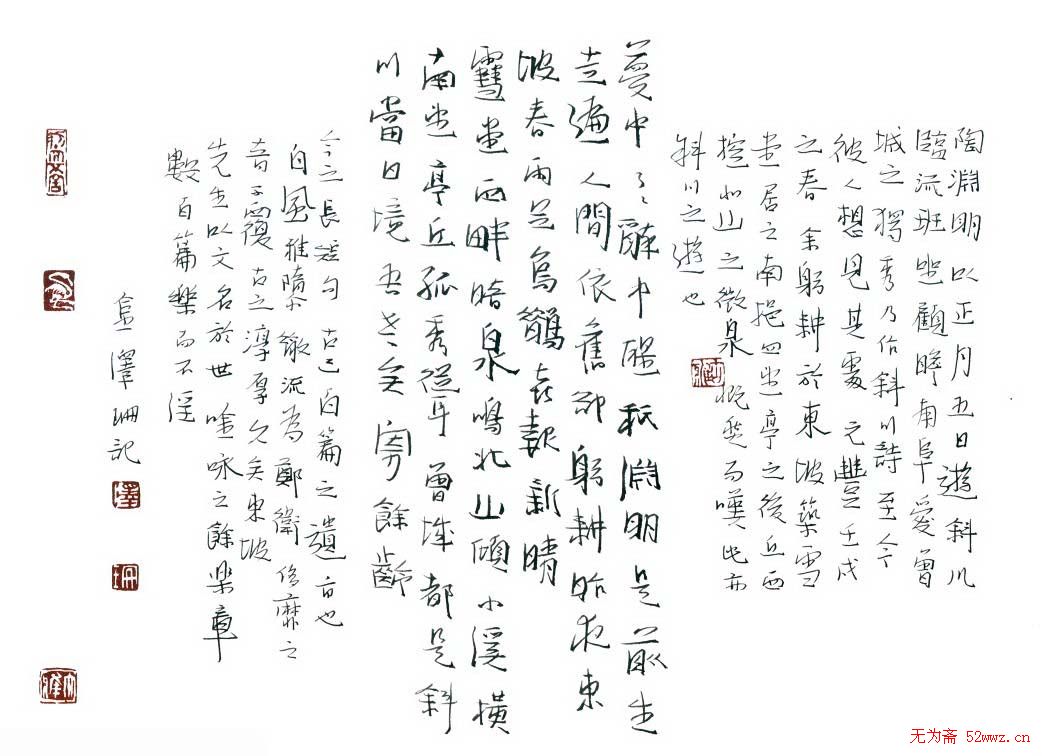 陶淵明以正月五日遊斜川
臨流班坐顧瞻南阜愛曾
城之獨秀乃作斜川詩至今
使人想見其處元豐壬戌
之春余躬耕於東坡築雪
堂居之南挹四望亭之後丘西
控北山之微泉慨然而嘆此亦
斜川之遊也
夢中了了醉中醒秖淵明是前生
走遍人間依舊却躬耕昨夜東
坡春雨足烏鵲喜報新晴
雪堂西畔暗泉鳴北山傾小溪橫
南望亭丘孤秀聳曾城都是斜
川當日境吾老矣寄餘齡
今之長短句古三百篇之遺旨也
自風雅隳散流為鄭衛侈靡之
音不復古之淳厚久矣東坡
先生以文名於世吟詠之餘樂章
數百篇樂而不淫
澤珊記
澤
珊
无为斋 52wwz.cn